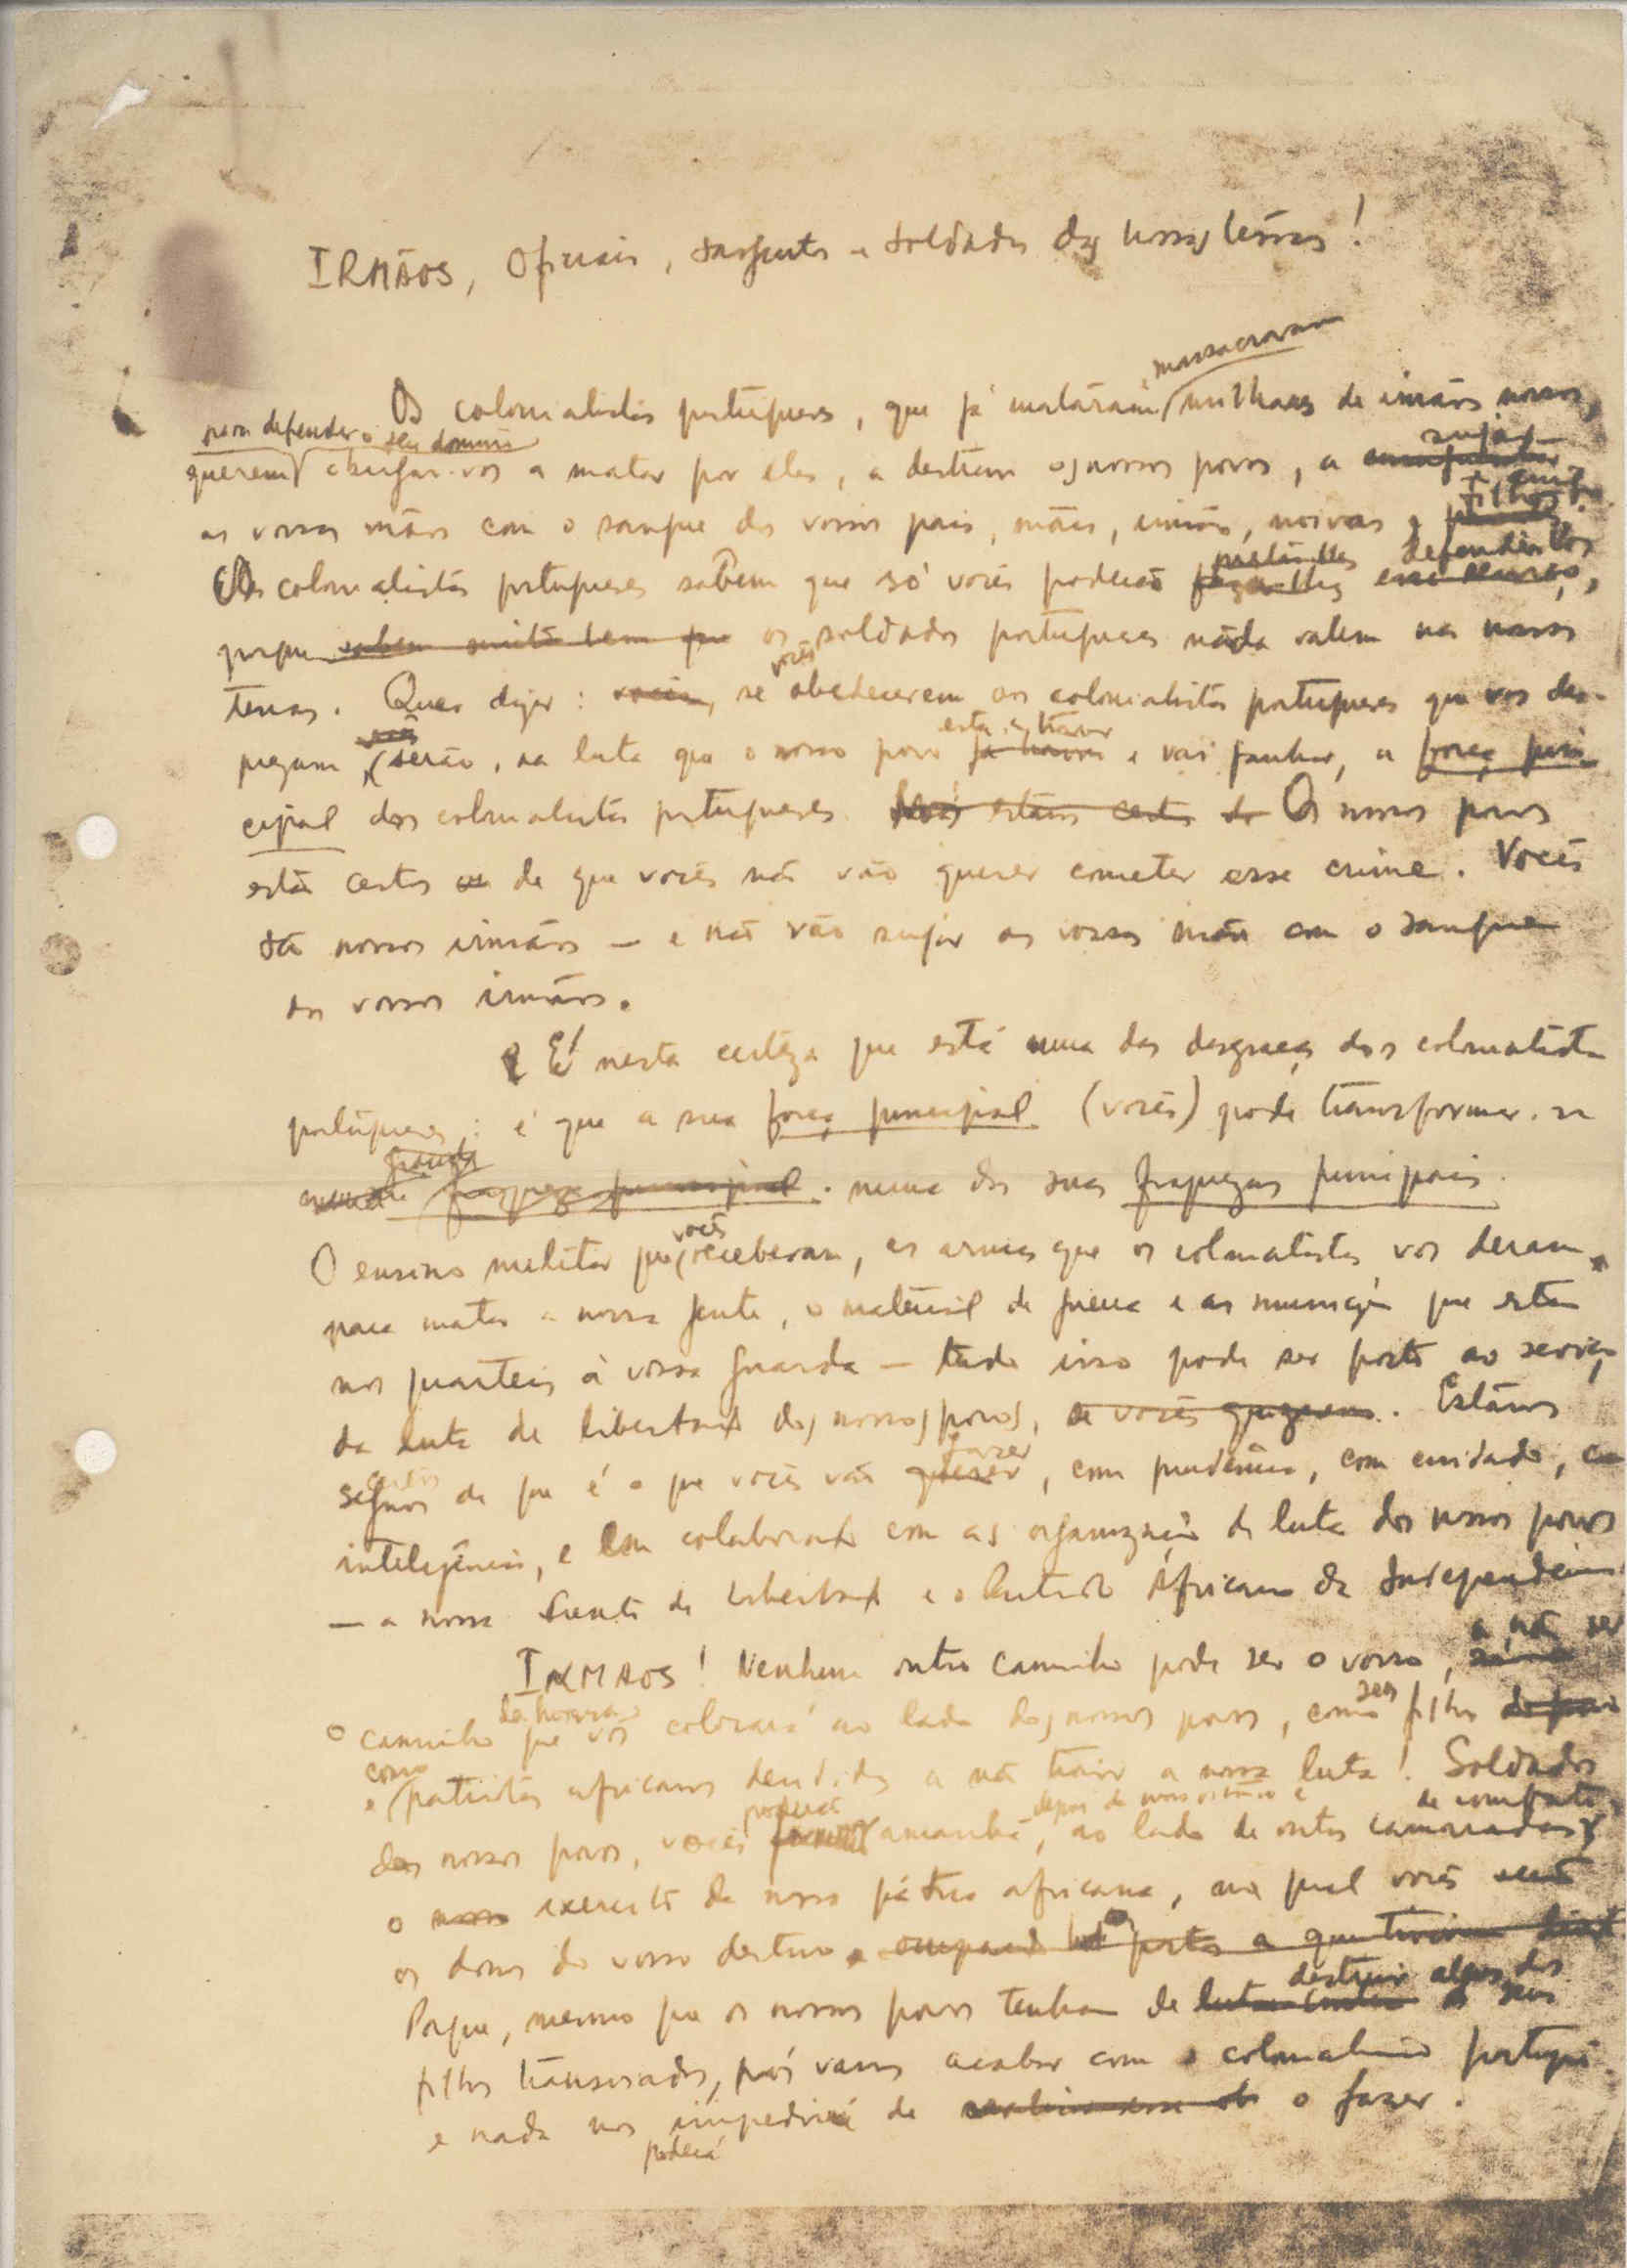 IRMÃOS, Oficiais, sargentos e soldados das nossas terras!
massacraram
Os colonialistas portugueses, que já mataram milhares de irmãos nossos,
para defender o seu domínio
querem obrigar-vos a matar por eles, a destruir os nossos povos, a sujar
as vossas mãos com o sangue dos vossos pais, mães, irmãos, noivas e filhos.
Os colonialistas portugueses sabem que só vocês poderão defendê-los,
porque sabem muito bem que os soldados portugueses nada valem nas nossas
terras. Quer dizer: vocês, se vocês obedecerem aos colonialistas portugueses que vos des-
prezam, serão, na luta que o nosso povo está a travar e vai ganhar, a força prin-
cipal dos colonialistas portugueses. Nós estamos certos de Os nossos povos
estão certos de que vocês não vão querer cometer esse crime. Vocês
são nossos irmãos — e não vão sujar as vossas mãos com o sangue
dos vossos irmãos.
É nesta certeza que está uma das desgraças dos colonialistas
portugueses: é que a sua força principal (vocês) pode transformar-se
grande fraqueza principal. numa das suas fraquezas principais.
O ensino militar que vocês receberam, as armas que os colonialistas vos deram
para matar a nossa gente, o material de guerra e as munições que estão
nos quarteis à vossa guarda — tudo isso pode ser posto ao serviço
da luta de libertação dos nossos povos, se vocês quiserem. Estamos
certos
seguros de que é o que vocês vão fazer, com prudência, com cuidado, com
inteligência, e em colaboração com as organizações de luta dos nossos povos
— a nossa Frente de Libertação e o Partido Africano da Independência
IRMÃOS! Nenhum outro caminho pode ser o vosso, a não ser
o caminho da honra que vos colocará ao lado dos nossos povos, como seus filhos
e como patriotas africanos decididos a não trair a nossa luta! Soldados
depois de nossa vitória e
dos nossos povos, vocês poderão amanhã, ao lado de outros camaradas de combate,
o nosso exército da nossa pátria africana, na qual vocês serão
os donos do vosso destino
Porque, mesmo que os nossos povos tenham de destruir alguns dos seus
filhos transviados, nós vamos acabar com o colonialismo português
e nada nos impedirá de o fazer.
poderá